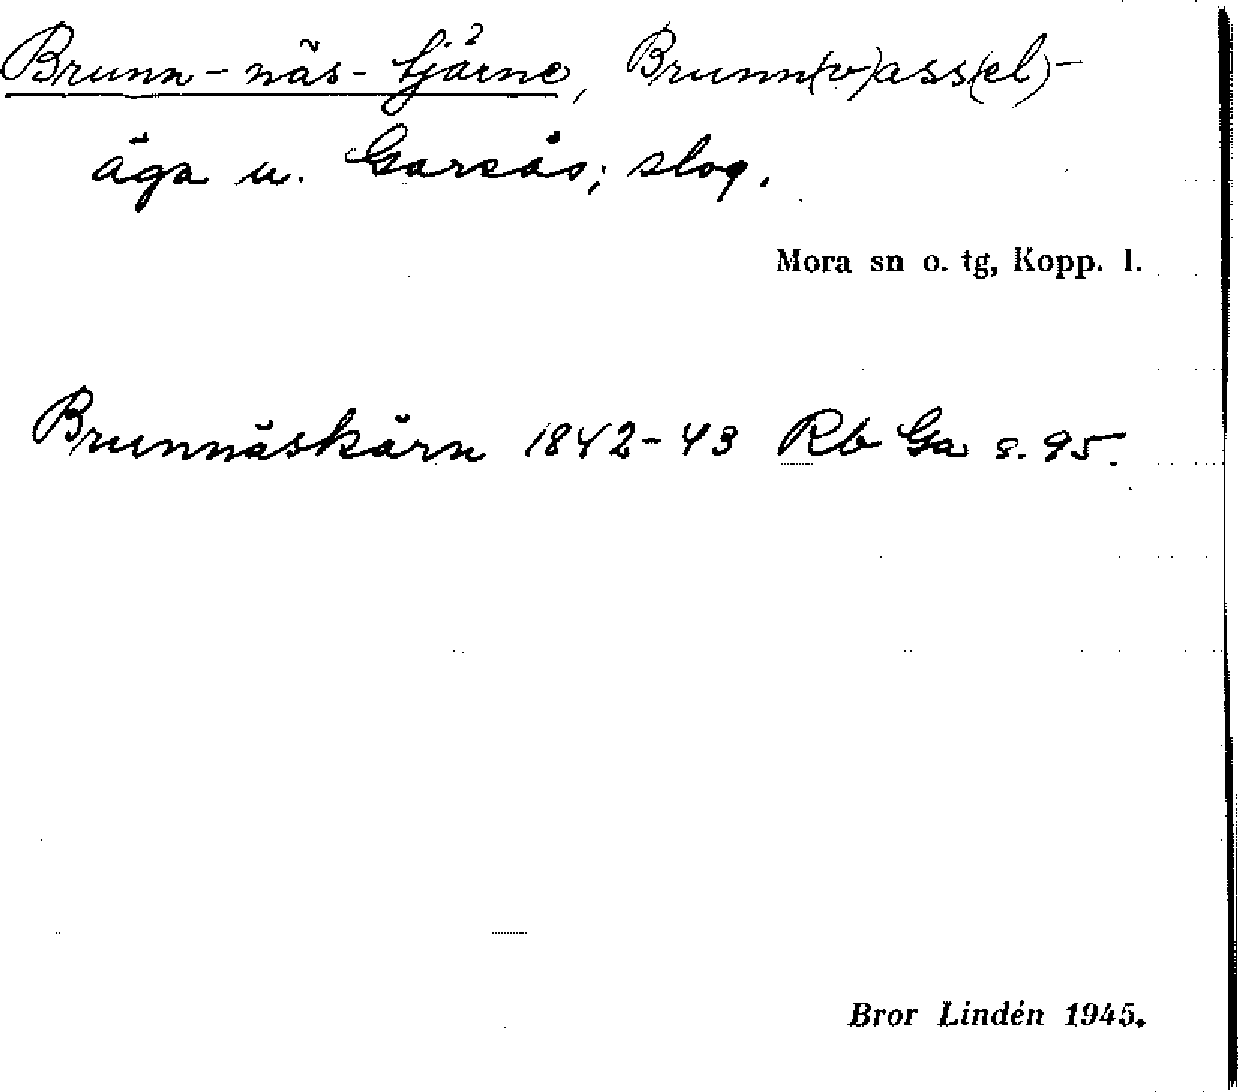 Brunn-näs-tjärne, Brunn(v)ass(el)-
äga u. Garsås; slog.
Mora sn o. tg, Kopp. l.
Brunnäskärn 1842-43 Rb Ga s. 95.
Bror Lindén 1945.